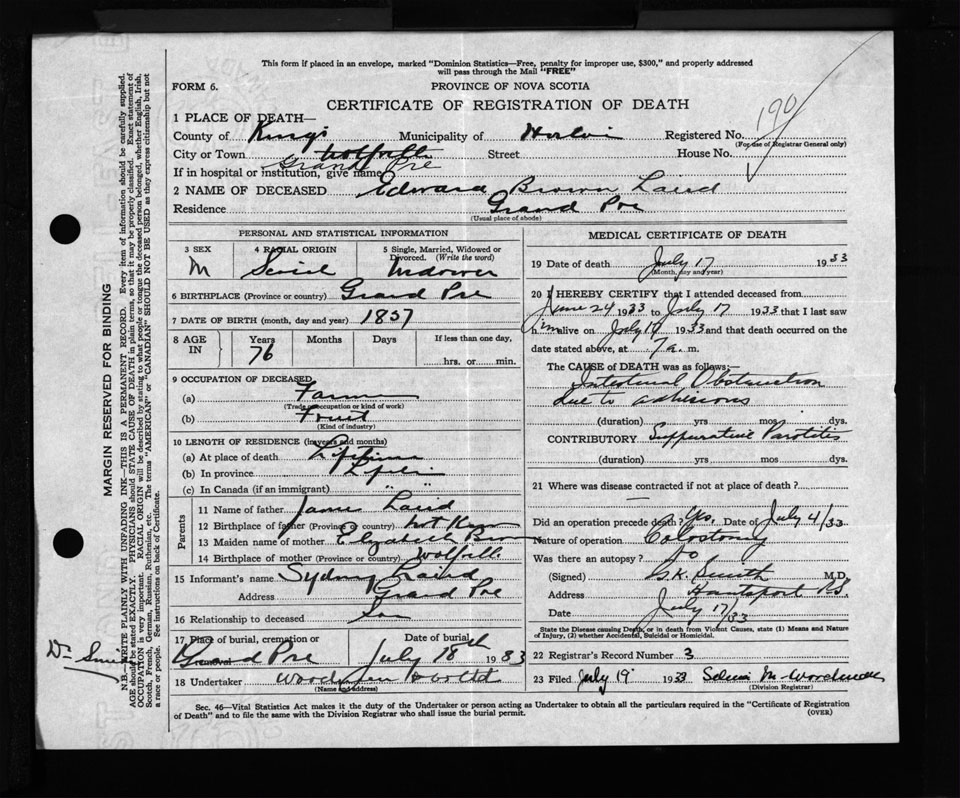 This form if placed in an envelope, marked "Dominion Statistics—Free, penalty for improper use, $300," and properly addressed
will pass through the Mail "FREE"
FORM 6.
PROVINCE OF NOVA SCOTIA
CERTIFICATE OF REGISTRATION OF DEATH
190
1 PLACE OF DEATH—
County of Kings Municipality of Registered No.
(For use of Registrar General only)
City or Town Wolfville Street House No.
Grand Pre
If in hospital or institution, give name
2 NAME OF DECEASED Edward Brown Laird
Residence Grand Pre
(Usual place of abode)
PERSONAL AND STATISTICAL INFORMATION
3 SEX 4 RACIAL ORIGIN 5 Single, Married, Widowed or Divorced. (Write the word)
M Widower
6 BIRTHPLACE (Province or country) Grand Pre
7 DATE OF BIRTH (month, day and year) 1857
8 AGE IN Years Months Days If less than one day,
76 hrs. or min.
9 OCCUPATION OF DECEASED
(a) Farmer
(Trade, occupation or kind of work)
(b) Fruit
(Kind of industry)
10 LENGTH OF RESIDENCE (in years and months)
(a) At place of death Lifetime
(b) In province
(c) In Canada (if an immigrant) " "
Parents
11 Name of father James Laird
12 Birthplace of father (Province or country) not Known
13 Maiden name of mother Elizabeth Brown
14 Birthplace of mother (Province or country) Wolfville
15 Informant's name Sydney Laird
Address Grand Pre
16 Relationship to deceased Son
17 Place of burial, cremation or removal Date of burial
Grand Pre July 18th 1933
18 Undertaker
(Name and address)
MEDICAL CERTIFICATE OF DEATH
19 Date of death July 17 1933
(Month, day and year)
20 I HEREBY CERTIFY that I attended deceased from
June 24 1933 to July 17 1933 that I last saw
him alive on July 1933 and that death occurred on
date stated above, at 7 a. m.
The CAUSE OF DEATH was as follows:—
Intestinal Obstruction
due to adhesions
(duration) yrs mos dys.
CONTRIBUTORY Suppurative Parotitis
(duration) yrs mos dys.
21 Where was disease contracted if not at place of death?
—
Did an operation precede death? Yes. Date of July 4/33
Nature of operation Colostomy
Was there an autopsy? No
(Signed) B.K. Smith M.D.
Address Hantsport N.S.
Date July 17/33
State the Disease causing Death, or in death from Violent Causes, state (1) Means and Nature of Injury, (2) whether Accidental, Suicidal or Homicidal.
22 Registrar's Record Number 3
23 Filed July 19 1933
(Division Registrar)
Sec. 46—Vital Statistics Act makes it the duty of the Undertaker or person acting as Undertaker to obtain all the particulars required in the "Certificate of Registration
of Death" and to file the same with the Division Registrar who shall issue the burial permit.
(OVER)
MARGIN RESERVED FOR BINDING
N.B.—WRITE PLAINLY WITH UNFADING INK—THIS IS A PERMANENT RECORD. Every item of information should be carefully supplied.
AGE should be stated EXACTLY. PHYSICIANS should STATE CAUSE OF DEATH in plain terms, so that it may be properly classified. Exact statement of
OCCUPATION is very important. RACIAL ORIGIN will be described by stating to what people or tongue the deceased person belonged, whether English, Irish,
Scotch, French, German, Russian, Ruthenian, etc. The terms "AMERICAN" or "CANADIAN" SHOULD NOT BE USED as they express citizenship but not
a race or people. See instructions on back of Certificate.
Dr. Smith